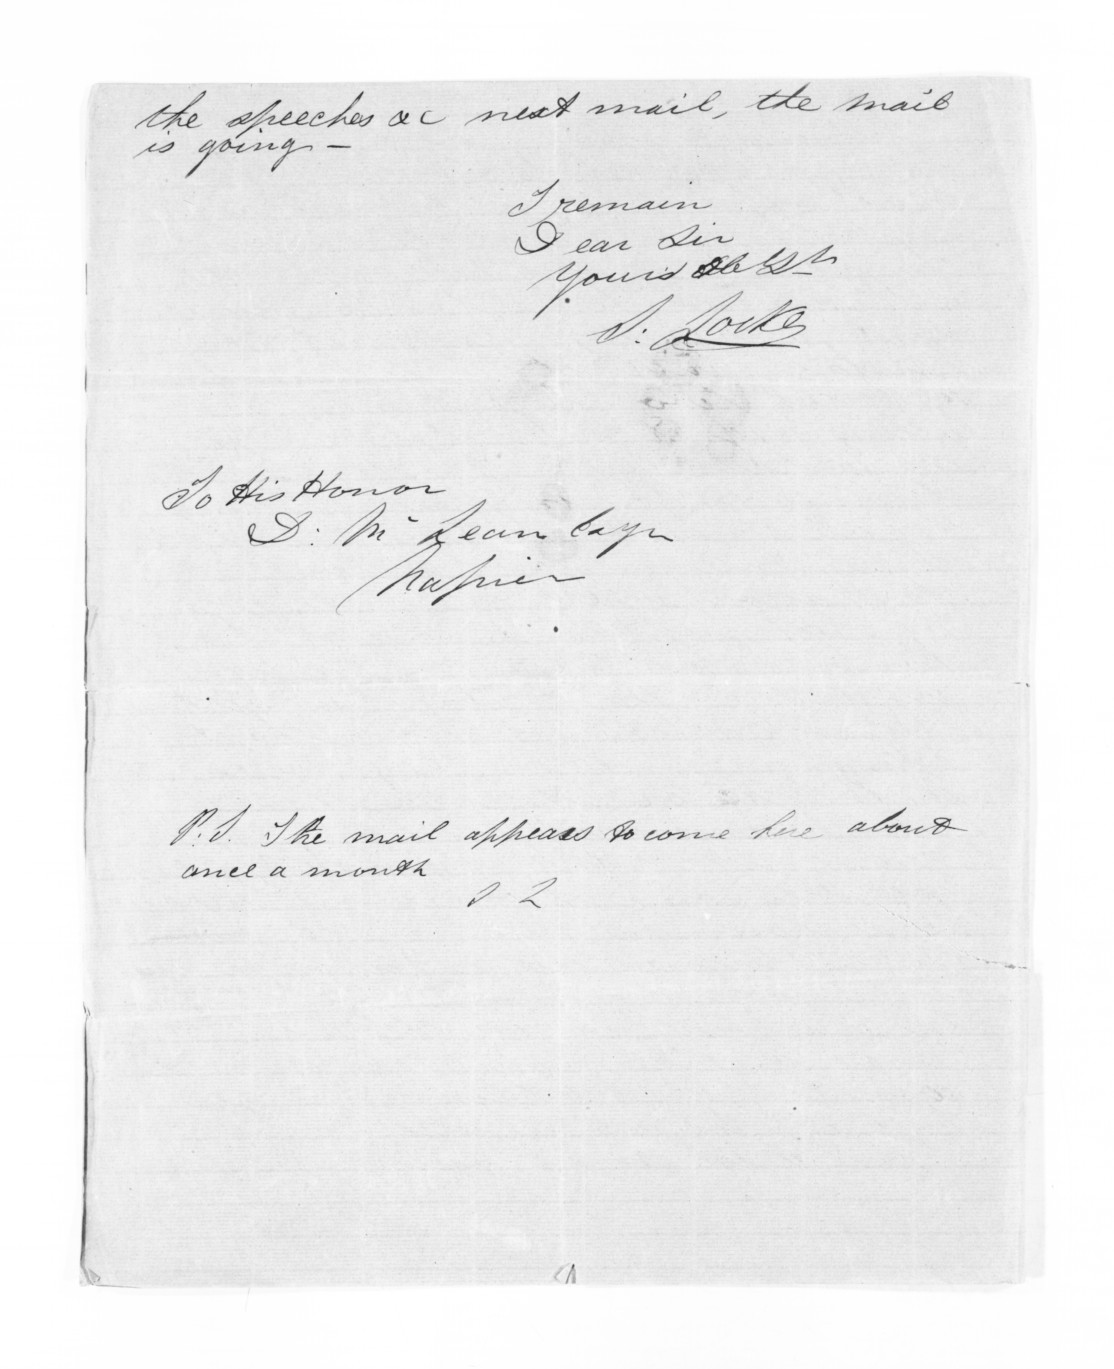 the speeches &c next mail, the mail
is going —
I remain
Dear Sir
Yours
S. Locke
To His Honor
D. McLean Esqr
Napier
P.S. The mail appears to come here about
once a month
S L